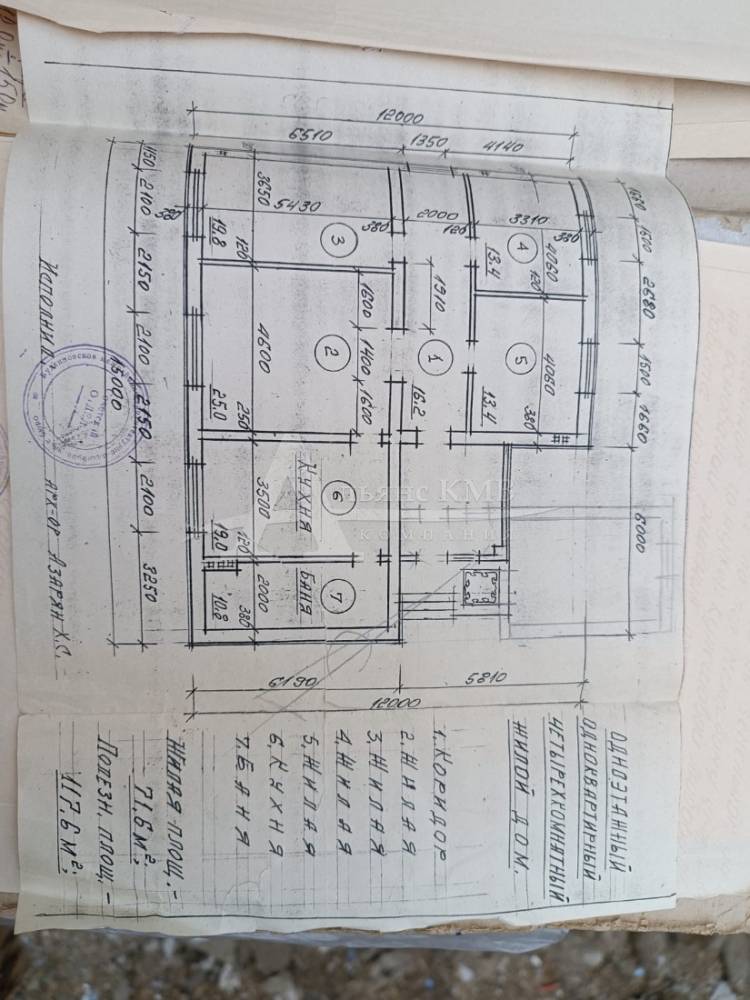 ОДНОЭТАЖНЫЙ
ОДНОКВАРТИРНЫЙ
ЧЕТЫРЕХКОМНАТНЫЙ
ЖИЛОЙ ДОМ.
1. КОРИДОР
2. ЖИЛАЯ
3. ЖИЛАЯ
4. ЖИЛАЯ
5. ЖИЛАЯ
6. КУХНЯ
7. БАНЯ
ЖИЛАЯ ПЛОЩ. –
71,6 м²;
ПОЛЕЗН. ПЛОЩ. –
117,6 м²;
12000
6510 1350 4140
1680 1600 2680 1500 1660 6000
3650
5430
380
2000
120
3310
380
19.8
120
3
4
4060
120
13.4
1910
1
16.2
5
4060
380
13.4
1600
1400
1600
2
4600
250
25.0
6
КУХНЯ
3500
120
19.0
7
БАНЯ
2000
380
10.8
1150 2100 2150 2100 2150 2100 3250
15000
6190 5810
12000
Исполнил арх-ор Азарян Х.С.
Альянс КМВ
КОМПАНИЯ